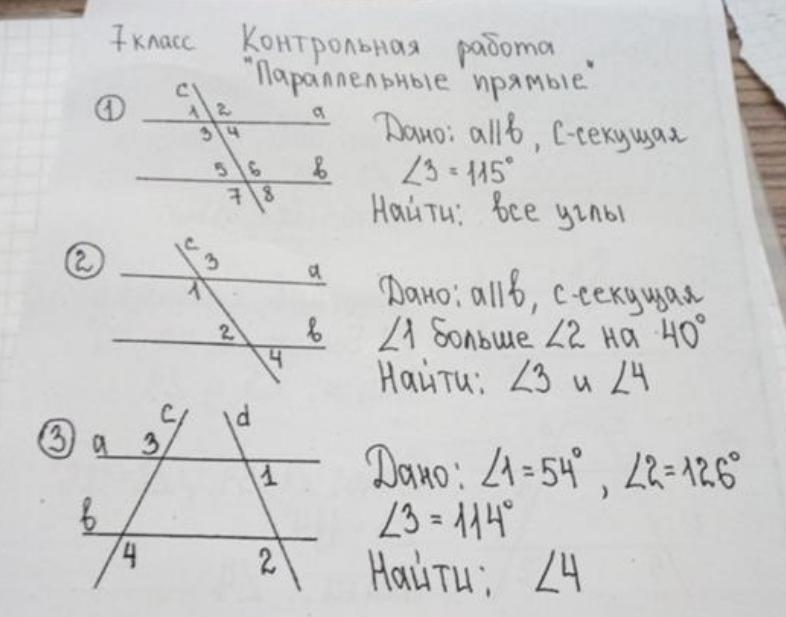 7 класс Контрольная работа
"Параллельные прямые"
① c 1 2 a
3 4
5 6 b
7 8
Дано: a||b, c-секущая
∠3 = 115°
Найти: все углы
② c 3 a
1
2 b
4
Дано: a||b, c-секущая
∠1 больше ∠2 на 40°
Найти: ∠3 и ∠4
③ a 3 c d
1
b
4 2
Дано: ∠1=54°, ∠2=126°
∠3 = 114°
Найти: ∠4